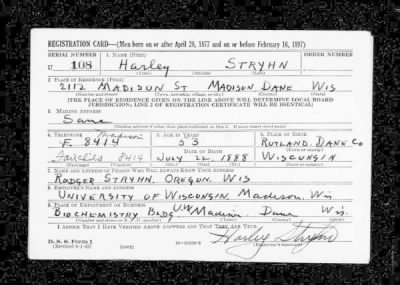 REGISTRATION CARD—(Men born on or after April 28, 1877 and on or before February 16, 1897)
SERIAL NUMBER 1. NAME (Print) ORDER NUMBER
U 108 Harley STRYHN
(First) (Middle) (Last)
2. PLACE OF RESIDENCE (Print)
2112 MADISON ST MADISON DANE WIS
(Number and street) (Town, township, village, or city) (County) (State)
[THE PLACE OF RESIDENCE GIVEN ON THE LINE ABOVE WILL DETERMINE LOCAL BOARD
JURISDICTION; LINE 2 OF REGISTRATION CERTIFICATE WILL BE IDENTICAL]
3. MAILING ADDRESS
Same
[Mailing address if other than place indicated on line 2. If same insert word same]
4. TELEPHONE 5. AGE IN YEARS 6. PLACE OF BIRTH
Madison
F. 8414 53 RUTLAND. DANE CO
DATE OF BIRTH
Fairchild 8414 JULY 22, 1888 WISCONSIN
(Exchange) (Number) (Mo.) (Day) (Yr.) (State or country)
7. NAME AND ADDRESS OF PERSON WHO WILL ALWAYS KNOW YOUR ADDRESS
RODGER STRYHN. OREGON. WIS
8. EMPLOYER'S NAME AND ADDRESS
UNIVERSITY OF WISCONSIN. MADISON. WIS
9. PLACE OF EMPLOYMENT OR BUSINESS
BIOCHEMISTRY BLDG. U.W. Madison Dane Wis.
(Number and street or R. F. D. number) (Town) (County) (State)
I AFFIRM THAT I HAVE VERIFIED ABOVE ANSWERS AND THAT THEY ARE TRUE.
D. S. S. Form 1
(Revised 4-1-42) (over)
Harley Stryhn